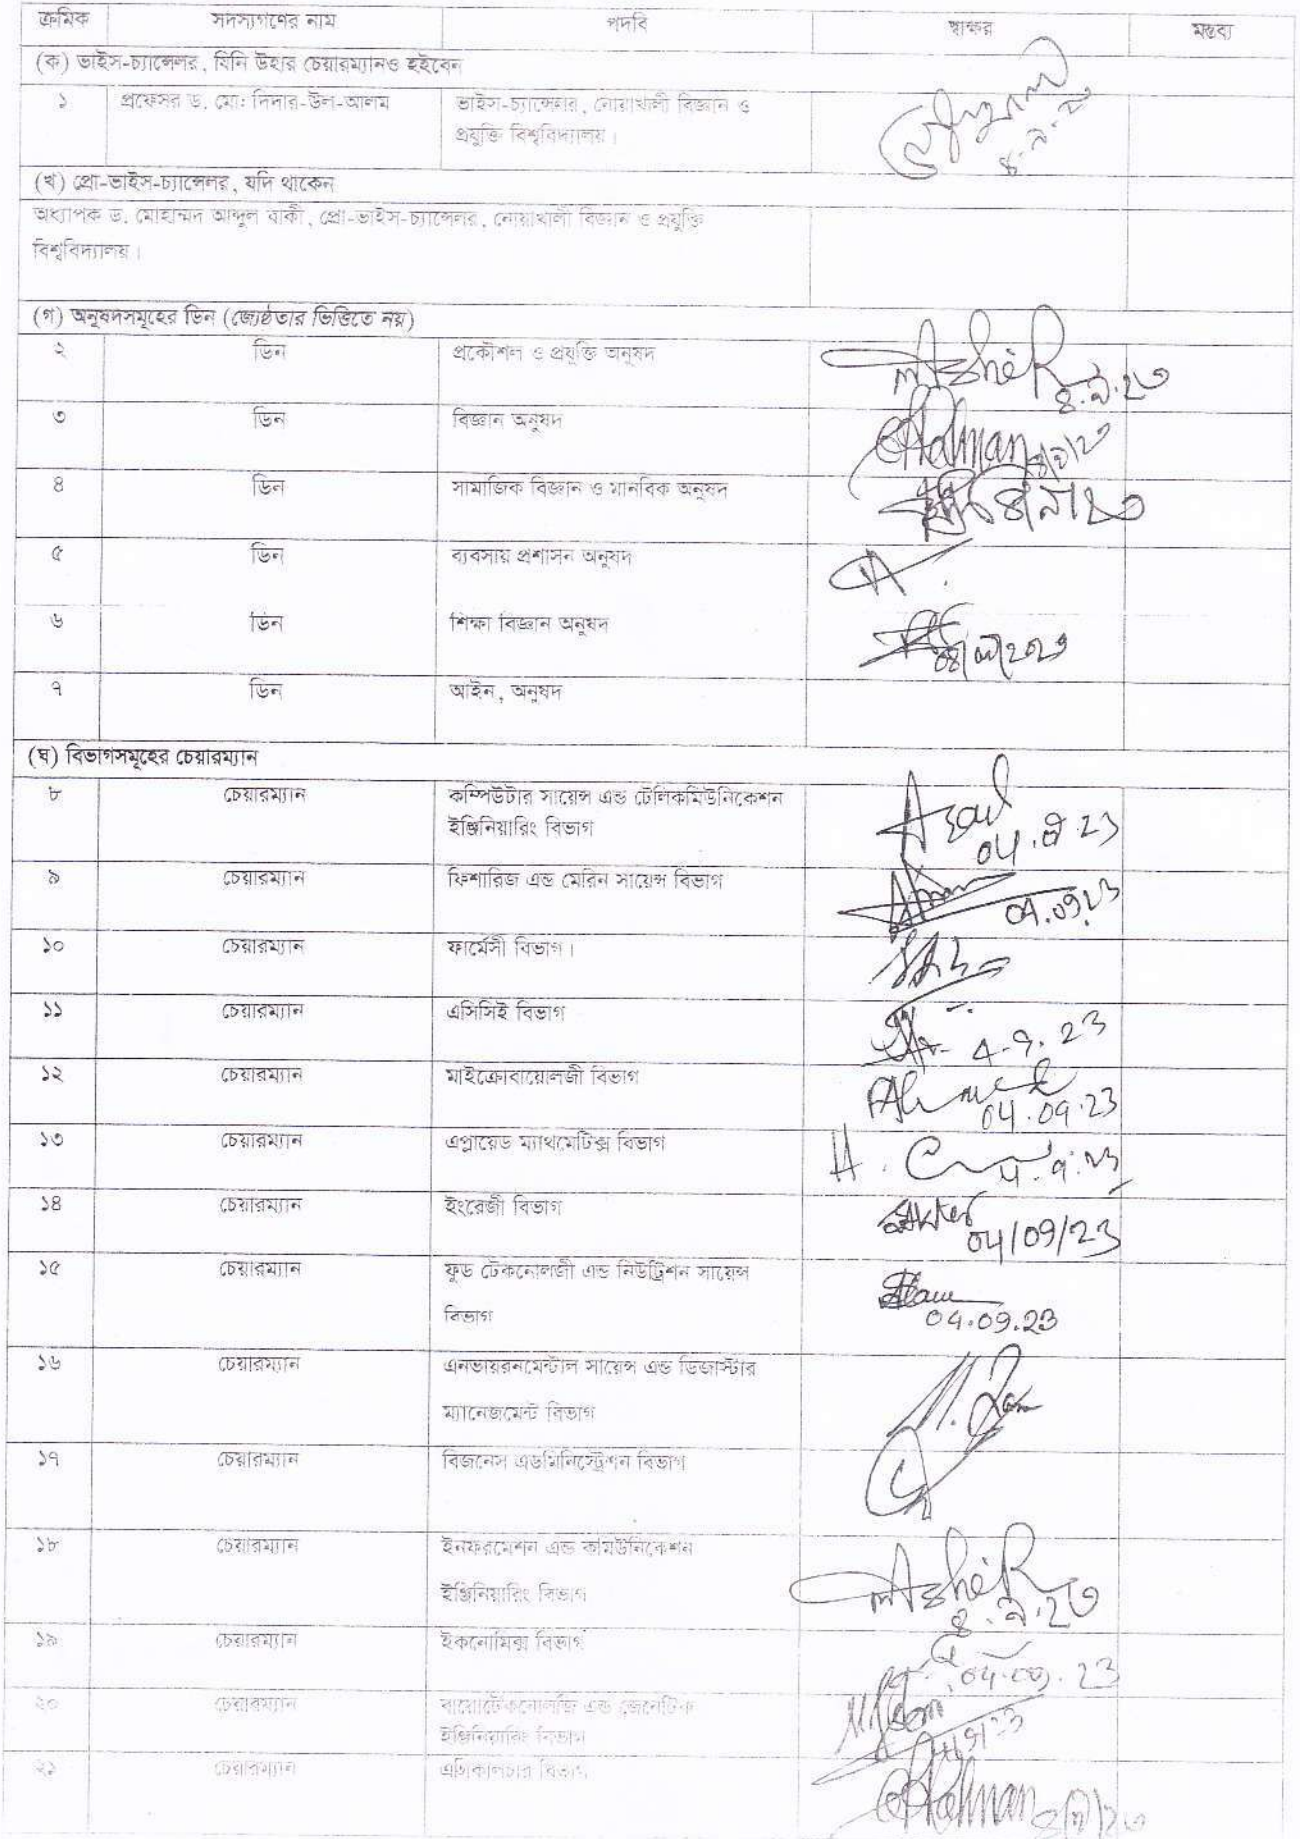 ক্রমিক সদস্যগণের নাম পদবি স্বাক্ষর মন্তব্য
(ক) ভাইস-চ্যান্সেলর, যিনি উহার চেয়ারম্যানও হইবেন
১ প্রফেসর ড. মো: দিদার-উল-আলম ভাইস-চ্যান্সেলর, নোয়াখালী বিজ্ঞান ও
প্রযুক্তি বিশ্ববিদ্যালয়।
(খ) প্রো-ভাইস-চ্যান্সেলর, যদি থাকেন
অধ্যাপক ড. মোহাম্মদ আব্দুল বাকী, প্রো-ভাইস-চ্যান্সেলর, নোয়াখালী বিজ্ঞান ও প্রযুক্তি
বিশ্ববিদ্যালয়।
(গ) অনুষদসমূহের ডিন (জ্যেষ্ঠতার ভিত্তিতে নয়)
২ ডিন প্রকৌশল ও প্রযুক্তি অনুষদ
৪.৯.২৩
৩ ডিন বিজ্ঞান অনুষদ
৪ ডিন সামাজিক বিজ্ঞান ও মানবিক অনুষদ
৫ ডিন ব্যবসায় প্রশাসন অনুষদ
৬ ডিন শিক্ষা বিজ্ঞান অনুষদ
৭ ডিন আইন, অনুষদ
(ঘ) বিভাগসমূহের চেয়ারম্যান
৮ চেয়ারম্যান কম্পিউটার সায়েন্স এন্ড টেলিকমিউনিকেশন
ইঞ্জিনিয়ারিং বিভাগ
04.09.23
৯ চেয়ারম্যান ফিশারিজ এন্ড মেরিন সায়েন্স বিভাগ
04.09.23
১০ চেয়ারম্যান ফার্মেসী বিভাগ।
১১ চেয়ারম্যান এসিসিই বিভাগ
4-9.23
১২ চেয়ারম্যান মাইক্রোবায়োলজী বিভাগ
04.09.23
১৩ চেয়ারম্যান এপ্লায়েড ম্যাথমেটিক্স বিভাগ
4.9.23
১৪ চেয়ারম্যান ইংরেজী বিভাগ
04/09/23
১৫ চেয়ারম্যান ফুড টেকনোলজী এন্ড নিউট্রিশন সায়েন্স
বিভাগ
04.09.23
১৬ চেয়ারম্যান এনভায়রনমেন্টাল সায়েন্স এন্ড ডিজাস্টার
ম্যানেজমেন্ট বিভাগ
১৭ চেয়ারম্যান বিজনেস এডমিনিস্ট্রেশন বিভাগ
১৮ চেয়ারম্যান ইনফরমেশন এন্ড কমিউনিকেশন
ইঞ্জিনিয়ারিং বিভাগ
৪.৯.২৩
১৯ চেয়ারম্যান ইকনোমিক্স বিভাগ
04.09.23
২০ চেয়ারম্যান বায়োটেকনোলজি এন্ড জেনেটিক
ইঞ্জিনিয়ারিং বিভাগ
২১ চেয়ারম্যান এগ্রিকালচার বিভাগ